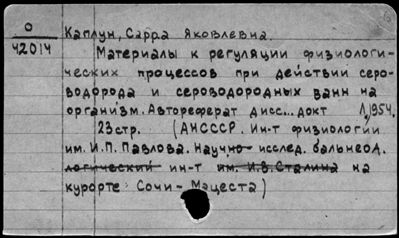 О
42014
Каплун, Сарра Яковлевна.
Материалы к регуляции физиологи-
ческих процессов при действии серо-
водорода и сероводородных ванн на
организм. Автореферат дисс... докт Л, 1954.
23стр. (АНСССР. Ин-т физиологии
им. И.П. Павлова. Научно- исслед. бальнеол.
логический ин-т им. И.В. Сталина на
курорте Сочи-Мацеста)